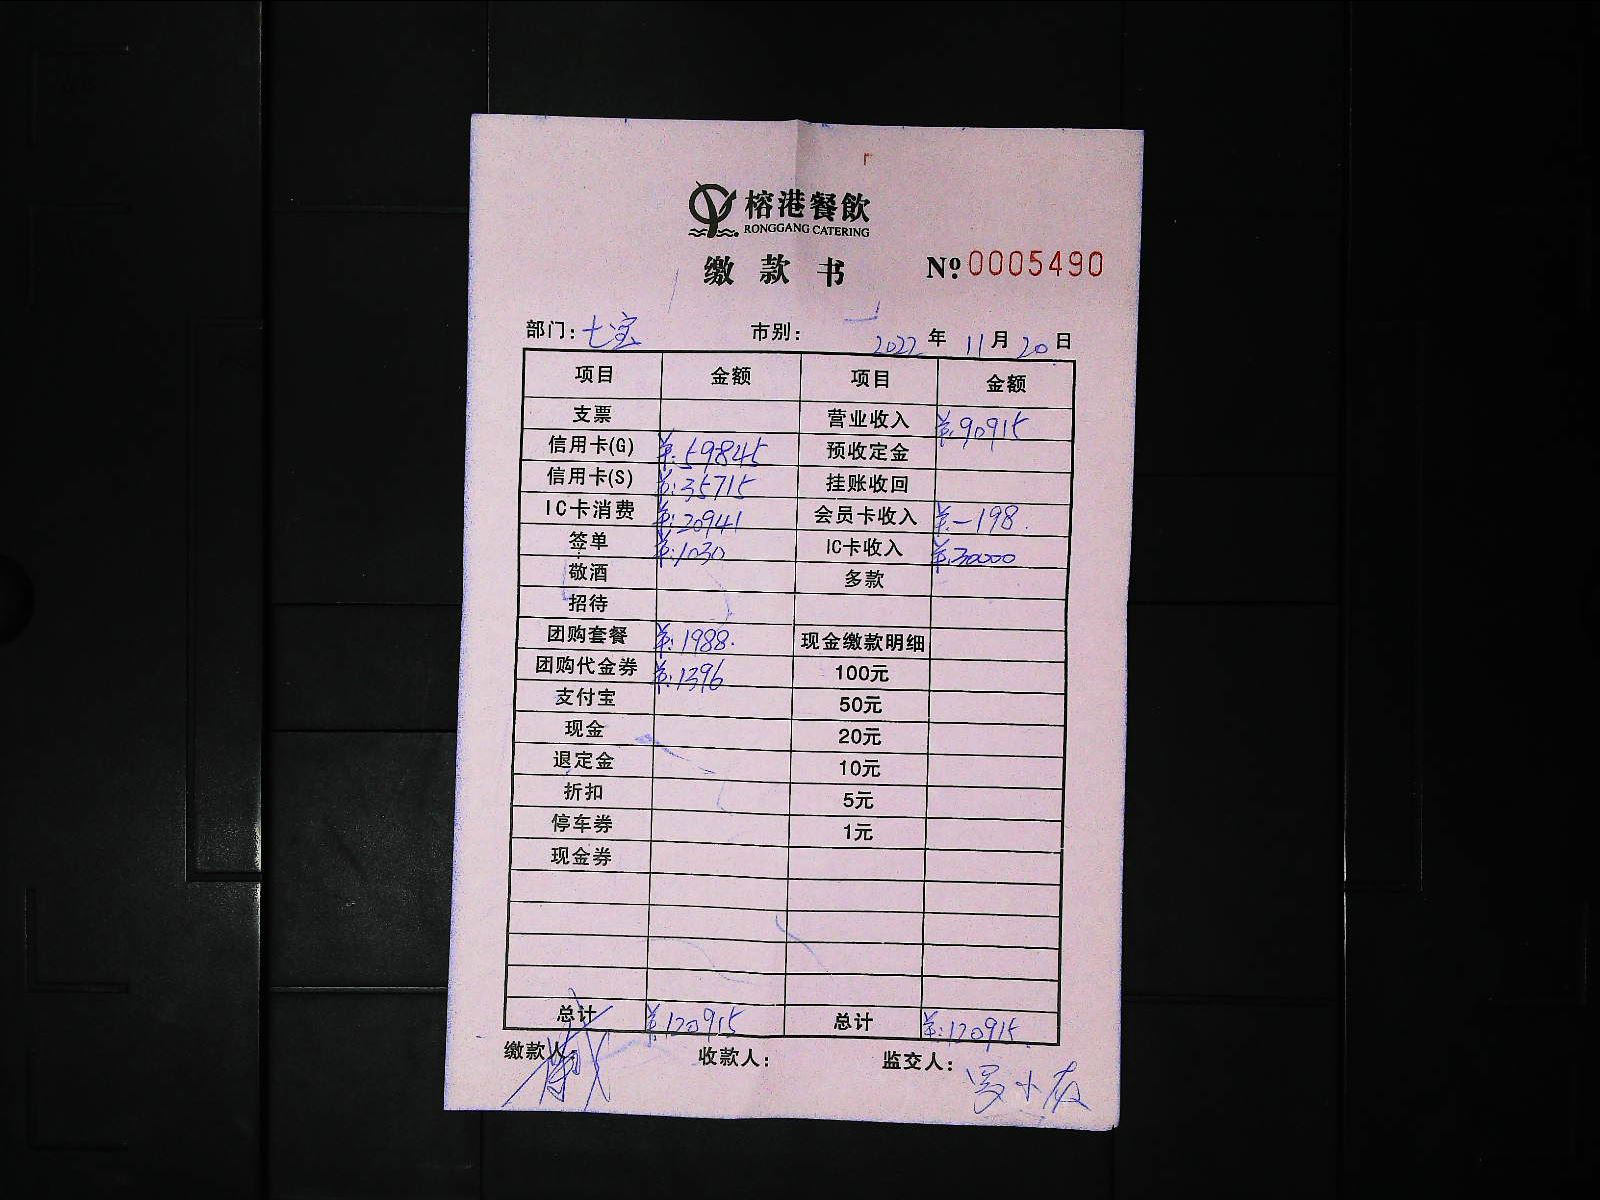 榕港餐飲
RONGGANG CATERING
缴款书 Nº 0005490
部门: 七宝 市别: 2022年 11月 20日
项目 金额 项目 金额
支票 营业收入 ¥:90915
信用卡(G) ¥:59845 预收定金
信用卡(S) ¥:35715 挂账收回
IC卡消费 ¥:20941 会员卡收入 ¥:-198.
签单 ¥:1030 IC卡收入 ¥:30000
敬酒 多款
招待
团购套餐 ¥:1988. 现金缴款明细
团购代金券 ¥:1396 100元
支付宝 50元
现金 20元
退定金 10元
折扣 5元
停车券 1元
现金券
总计 ¥:120915 总计 ¥:120915.
缴款人: 收款人: 监交人: